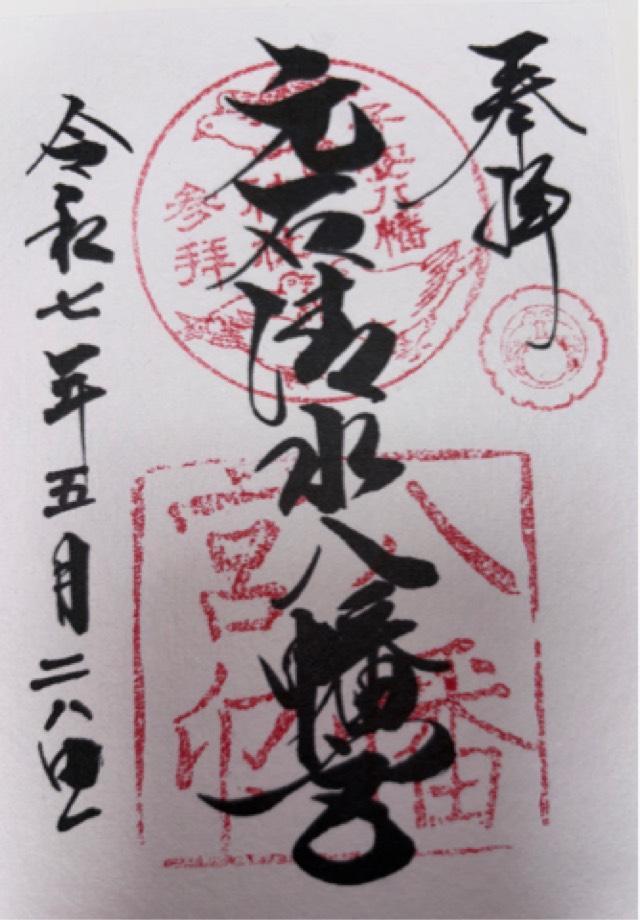 奉拝
元石清水八幡宮
令和七年五月二八日
子安八幡
神社
参拝
八幡
宮印